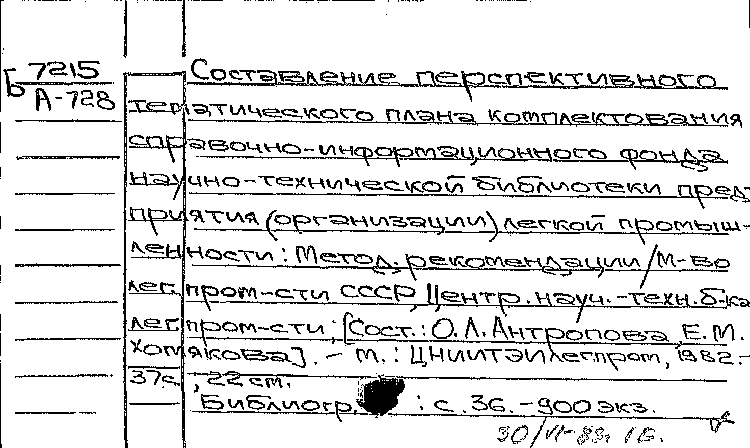 Б 7215
А-728
Составление перспективного
тематического плана комплектования
справочно-информационного фонда
научно-технической библиотеки пред-
приятия (организации) легкой промыш-
ленности: Метод. рекомендации / М-во
лег. пром-сти СССР, Центр. науч.-техн. б-ка
лег. пром-сти; [Сост.: О.Л. Антропова, Е.М.
Хомякова]. - М.: ЦНИИТЭИлегпром, 1982. -
37с., 22 см.
Библиогр. : с. 36. - 900 экз.
30/VI-83г.